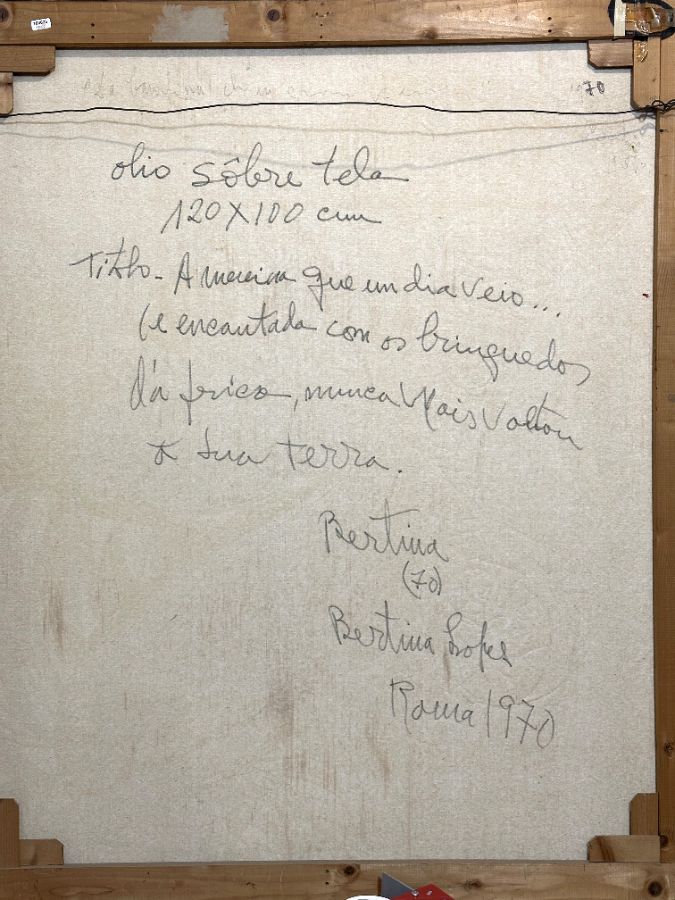 70
olio sôbre tela
120X100 cm
Titolo - A menina que um dia veio...
(e encantada com os brinquedos
d'africa, nunca Mais Voltou
a sua terra.
Bertina
(70)
Bertina Lopes
Roma 1970